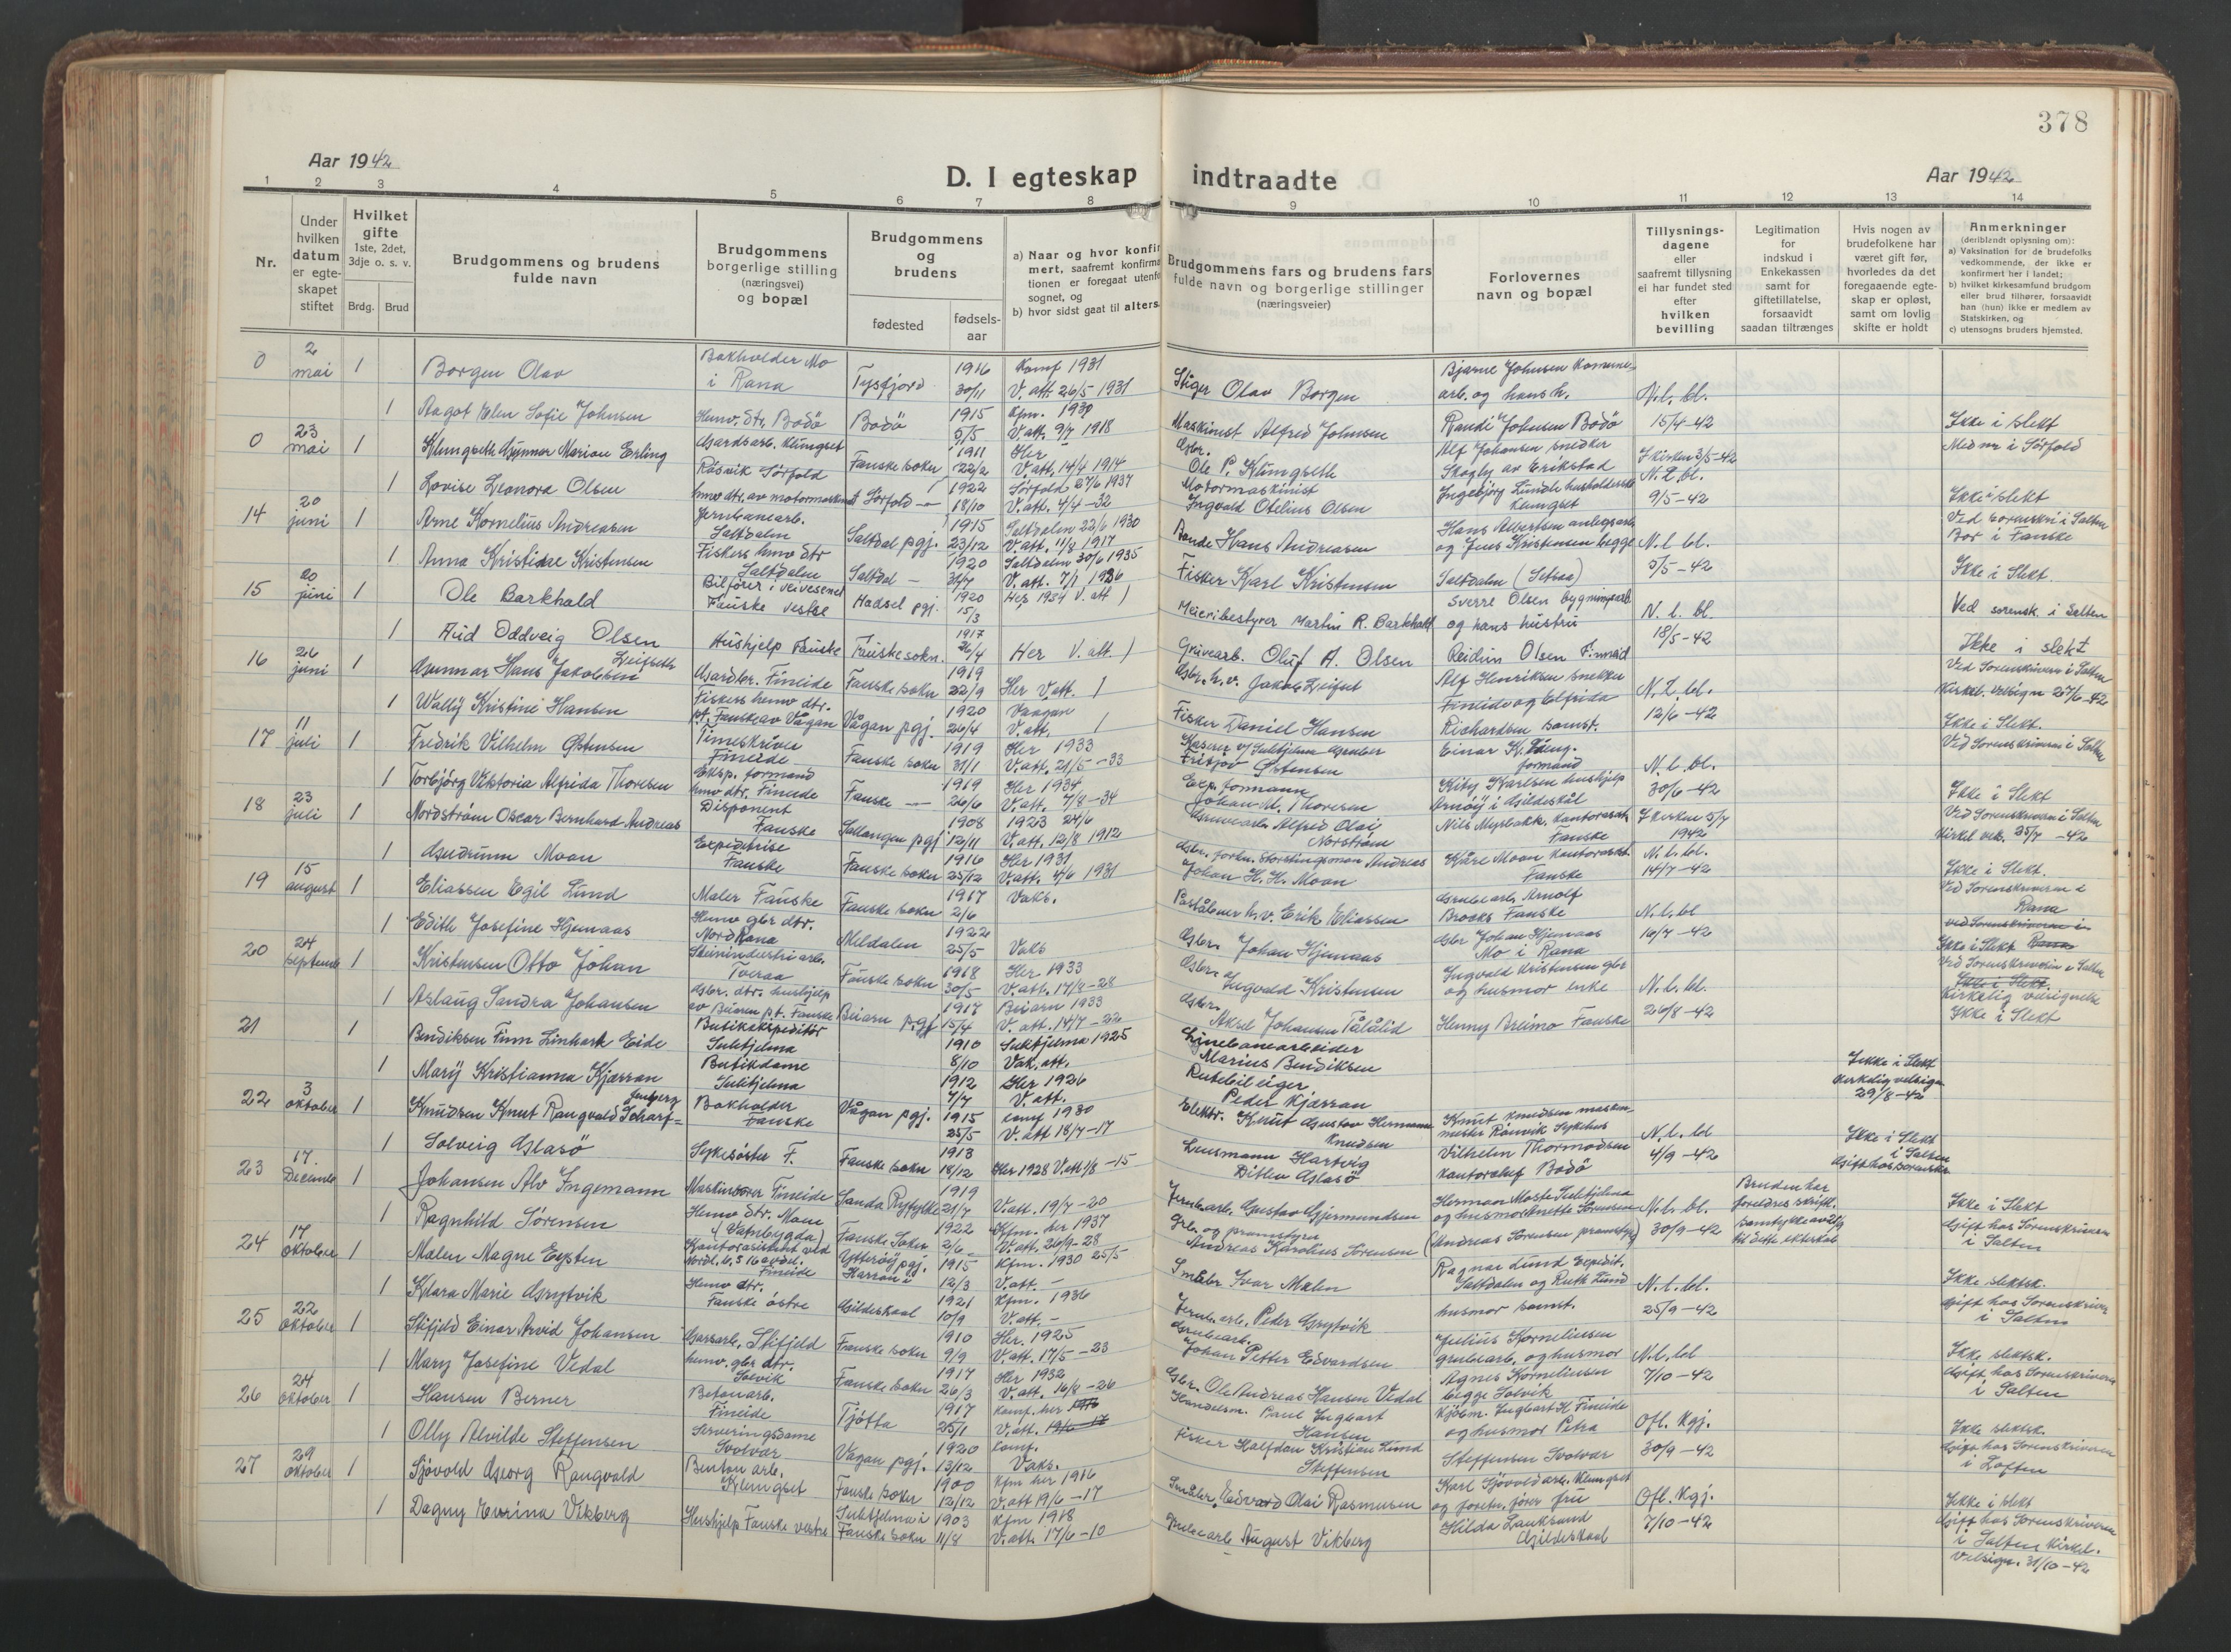 378
Aar 1942
D. I egteskap indtraadte
Aar 1942
1 2 3 4 5 6 7 8 9 10 11 12 13 14
Nr.
Under hvilken datum er egteskapet stiftet
Hvilket gifte
1ste, 2det, 3dje o. s. v.
Brdg. Brud
Brudgommens og brudens fulde navn
Brudgommens borgerlige stilling (næringsvei) og bopæl
Brudgommens og brudens
fødested
fødsels-aar
a) Naar og hvor konfir
mert, saafremt konfirma
tionen er foregaat utenfo
sognet, og
b) hvor sidst gaat til alters.
Brudgommens fars og brudens fars
fulde navn og borgerlige stillinger
(næringsveier)
Forlovernes
navn og bopæl
Tillysnings-
dagene
eller
saafremt tillysning
ei har fundet sted
efter
hvilken
bevilling
Legitimation
for
indskud i
Enkekassen
samt for
giftetillatelse,
forsaavidt
saadan tiltrænges
Hvis nogen av
brudefolkene har
været gift før,
hvorledes da det
foregaaende egte-
skap er opløst,
samt om lovlig
skifte er holdt
Anmerkninger
(deriblendt oplysning om):
a) Vaksination for de brudefolks
vedkommende, der ikke er
konfirmert her i landet;
b) hvilket kirkesamfund brudgom
eller brud tilhører, forsaavidt
han (hun) ikke er medlem av
Statskirken, og
c) utensogns bruders hjemsted.
0 2 mai 1 Borgen Olav Bokholder Mo i Rana Tysfjord 1916 30/11 Konf 1931 V. att. 26/5 1931 Stiger Olav Borgen Bjarne Johnsen Kommunearb. og hans h. N.l. bl.
1 Aagot Elen Sofie Johnsen Hemv. dtr. Bodö Bodö 1915 5/5 Kfm. 1930 V. att. 9/7 1918 Maskinist Alfred Johnsen Randi Johnsen Bodö 15/4-42 Ikke i slekt
0 23 mai 1 Klungseth Gunnar Marion Erling Gardsarb. Klungset Fauske sokn 1911 22/2 Her V. att. 14/4 1914 Gbr. Ole P. Klungseth Alf Johansen snekker Skogly av Erikstad I kirken 3/5-42 N.l. bl. Med nr i Sörfold
1 Lovise Leonora Olsen Rösvik Sörfold hmv dtr. av motormaskinist Sörfold 1922 18/10 Sörfold 27/6 1937 V. att. 4/4-32 Motormaskinist Ingvald Otelius Olsen Ingebjörg Lunde husholderske Klungset 9/5-42 Ikke i slekt
14 20 juni 1 Arne Kornelius Andreasen Jernbanearb. Saltdalen Saltdal pgj. 1915 23/12 Saltdalen 22/6 1930 V. att. 11/8 1917 Bonde Hans Andreasen Hans Albertsen anlegsarb og Jens Kristensen begge N.l. bl. Ved sorenskri i Salten Bor i Fauske
1 Anna Kristine Kristensen Fiskers hmv dtr Saltdalen Saltdal 1920 31/7 Saltdalen 30/6 1935 V. att. 7/1 1926 Fisker Karl Kristensen Saltdalen (Setsaa) 5/5-42 Ikke i Slekt.
15 20 juni 1 Ole Barkhald Bilförer i veivesenet Fauske vestre Hadsel pgj. 1920 15/3 Her 1934 V. att Meieribestyrer Martin R. Barkhald Sverre Olsen bygningsarb. og hans hustru N. l. bl. Ved sorensk. i Salten
1 Aud Oddveig Olsen Hushjelp Fauske Fauske sokn. 1917 26/4 Her V. att. Gruvearb. Oluf A. Olsen Reidun Olsen Finneid 18/5-42 Ikke i slekt
16 26 juni 1 Gunnar Hans Jakobsen Leifseth Gardbr. Fineide Fauske sokn 1919 22/9 Her V. att. Gbr. h. v. Jakob Leifset Alf Henriksen snekker N.l. bl. Ved Sorenskriveren i Salten Kirkel. velsign 27/6-42
1 Wally Kristine Hansen Fiskers hmv dtr. pt. Fauske av Vågan Vågan pgj. 1920 26/4 Vaagan V. att. Fisker Daniel Hansen Fineide og Elfrida Richardsen samst. 12/6-42 Ikke i Slekt.
17 11 juli 1 Fredrik Vilhelm Östensen Timeskriver Fineide Fauske sokn 1919 31/1 Her 1933 V. att. 21/5-33 Kaserer v/ Sulitjelma Gruber Fritjov Östensen Einar K. formand N.l. bl. Ved Sorenskriveren i Salten
1 Torbjörg Viktoria Alfrida Thoresen Eksp. formand hmv dtr. Fineide Fauske 1919 26/6 Her 1934 V. att. 7/8-34 Exp. formann Johan M. Thoresen Kity Karlsen hushjelp Arnöy i Gildeskål 30/6-42 Ikke i Slekt
18 23 juli 1 Nordström Oscar Bernhard Andreas Disponent Fauske Sallangen pgj 1908 12/11 1923 24/6 V. att. 12/8 1912 Gruvearb. Alfred Olai Norström Nils Myrbakk, kontorassist. Fauske I kirken 5/7 1942 Ved Sorenskriveren i Salten Kirkel vels. 25/7-42
1 Gudrunn Moan Expeditrise Fauske Fauske sokn 1916 25/12 Her 1931 V. att. 4/6 1931 Gbr. forhv. Stortingsman Andreas Johan H. H. Moan Kåre Moan kontorassist. Fauske N.l. bl. 14/7-42 Ikke i Slekt.
19 15 august 1 Eliassen Egil Lund Maler Fauske Fauske sokn 1917 2/6 Vaks. Poståbner h.v. Erik Eliassen Grubearb. Arnolf Brocks Fauske N.l. bl Ved Sorenskriveren i Rana
1 Edith Josefine Hjemaas Hemv gbr dtr. Nord Rana Meldalen 1922 25/5 Vaks Gbr. Johan Hjemaas Gbr Johan Hjemaas Mo i Rana 16/7-42 ved Sorenskriveren i Rana Ikke i Slekt
20 24 septembe 1 Kristensen Otto Johan Steinindustri arb. Tveraa Fauske sokn 1918 30/5 Her 1933 V. att. 17/8-28 Gbr. Ingvald Kristensen Ingvald Kristensen gbr og husmor enke N.l. bl. Ved Sorenskriveren i Salten Ikke i Slekt. Kirkelig velsignelse
1 Aslaug Sandra Johansen Gbr. dtr. hushjelp av Beiaren p.t. Fauske Beiarn pgj 1917 15/4 Beiarn 1933 V. att. 14/7-22 Gbr. Aksel Johansen Tålålid Henny Breimo Fauske 26/8-42 Ikke i Slekt
21 1 Bendiksen Finn Linhark Eide Butikekspeditör Sulitjelma 1910 8/10 Sulitjelma 1925 Vak. att. Linebanearbeider Marius Bendiksen
1 Mary Kristianna Kjærran Butikdame Sulitjelma 1912 7/7 Her 1926 V. att. Rutebileiger Peder Kjærran Ikke i Slekt Kirkelig velsign 29/8-42
22 3 oktober 1 Knudsen Knut Rangvald Scharf= Bokholder Fauske Vågan pgj. 1915 25/5 konf 1930 V. att 18/7-17 Elektr. Knut Gustav Hermann Knudsen Knut Knudsen maskinmester Rönvik Sykehus N.l. bl
1 Solveig Glasö Sykesöster F. Fauske sokn 1913 18/12 Her 1928 V. att 1/8-15 Lensmann Hartvig Ditlev Glasö Vilhelm Thormodsen kontorchef Bodö 4/9-42 Ikke i Slekt i Salten Gift hos Sorenskr
23 17. Decembe 1 Johansen Alv Ingemann Maskinsörer Fineide Sanda Ryfylke 1919 21/7 V. att. 19/7-20 Jernbarb. Gustav Gjermundsen Herman Moste Sulitjelma og husmor Anette Sörensen N.l. bl. Bruden har foreldres skriftl. samtykke av dtg til dette ekteskab Ikke i Slekt
1 Ragnhild Sörensen Hemv dtr. Moen (Vatnbygda) Fauske Sokn 1922 2/6 Kfm. her 1937 V. att. 26/9-28 Grb. og pramstyrer Andreas Karolius Sörensen (Andreas Sörensen pramstyr) 30/9-42 Gift hos Sorenskriveren i Salten
24 17 Oktober 1 Mælen Magne Eysten Kontorassistent ved Nordl. b. 5 16 avdel. Fineide Ytteröy pgj. 1915 12/3 Kfm. 1930 25/5 V. att. - Småbr Ivar Mælen Ragnar Lund Expedit. Saltdalen og Ruth Lund N.l. bl. Ikke slektsk.
1 Klara Marie Grytvik Hemv dtr. Fauske östre Gildeskaal 1921 10/9 Kfm. 1936 V. att. - Jernb. arb. Peder Grytvik husmor samst. 25/9-42 Gift hos Sorenskriver i Salten
25 22 Oktober 1 Stifjeld Einar Arvid Johansen Garsarb. Stifjeld Fauske sokn 1910 9/9 Her. 1925 V. att. 17/5-23 Grubearb. Johan Petter Edvardsen Julius Korneliusen grubearb. og husmor N.l. bl Ikke slektsk.
1 Mary Josefine Vedal hemv. gbr dtr. Solvik Fauske sokn 1917 26/3 Her 1932 V. att. 16/8-26 Gbr. Ole Andreas Hansen Vedal Agnes Korneliusen begge Solvik 7/10-42 Gift hos Sorenskriveren i Salten
26 24 Oktober 1 Hansen Berner Betonarb. Fineide Tjötta 1917 25/1 Konf. her 1916 V. att. 19/6-17 Handelsm. Paul Ingbart Hansen Kjöbm. Ingbart H. Fineide og husmor Petra Ofl. kgj. Ikke slektsk.
1 Olly Alvilde Steffensen Serveringsdame Svolvær Vågan pgj. 1920 13/12 konf. Vaks. Fisker Halfdan Kristian Lund Steffensen Steffensen Svolvær 30/9-42 Gift hos Sorenskriveren i Loften
27 29 Oktober 1 Sjövold Georg Rangvald Benton arb. Klungset Fauske sokn 1900 12/12 Kfm her 1916 V. att 19/6-17 Småbr. Edvard Olai Rasmusen Karl Sjövold arb. Klungset og foretn. förer fru Ofl. kgj. Ikke i slekt
1 Dagny Eurina Vikberg Hushjelp Fauske vestre Sulitjelma i Fauske sokn 1903 11/8 Kfm 1918 V. att. 17/6-10 Grubearb August Vikberg Hilda Lauksund Gildeskaal 7/10-42 Gift hos Sorenskriveren i Salten Kirkel. Velsign. 31/10-42